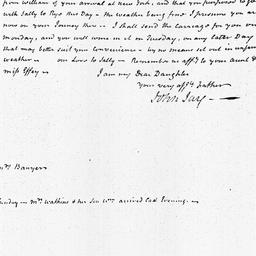 from William of your arrival at New York, and that you purposed to go
with Sally to Rye this Day — the weather being fine I presume you are
now on your Journey there — I shall send the Carriage for you on
monday, and you will come in it on Tuesday, or any later Day
that may better suit your convenience — by no means set out in unfavor
weather — our Love to Sally — Remember us affy. to your aunt &
miss Effey —
I am my Dear Daughter
your very affte. Father
John Jay —
Mrs. Banyer
Sunday — Mrs. Watkins & her Son Wm. arrived last Evening. —